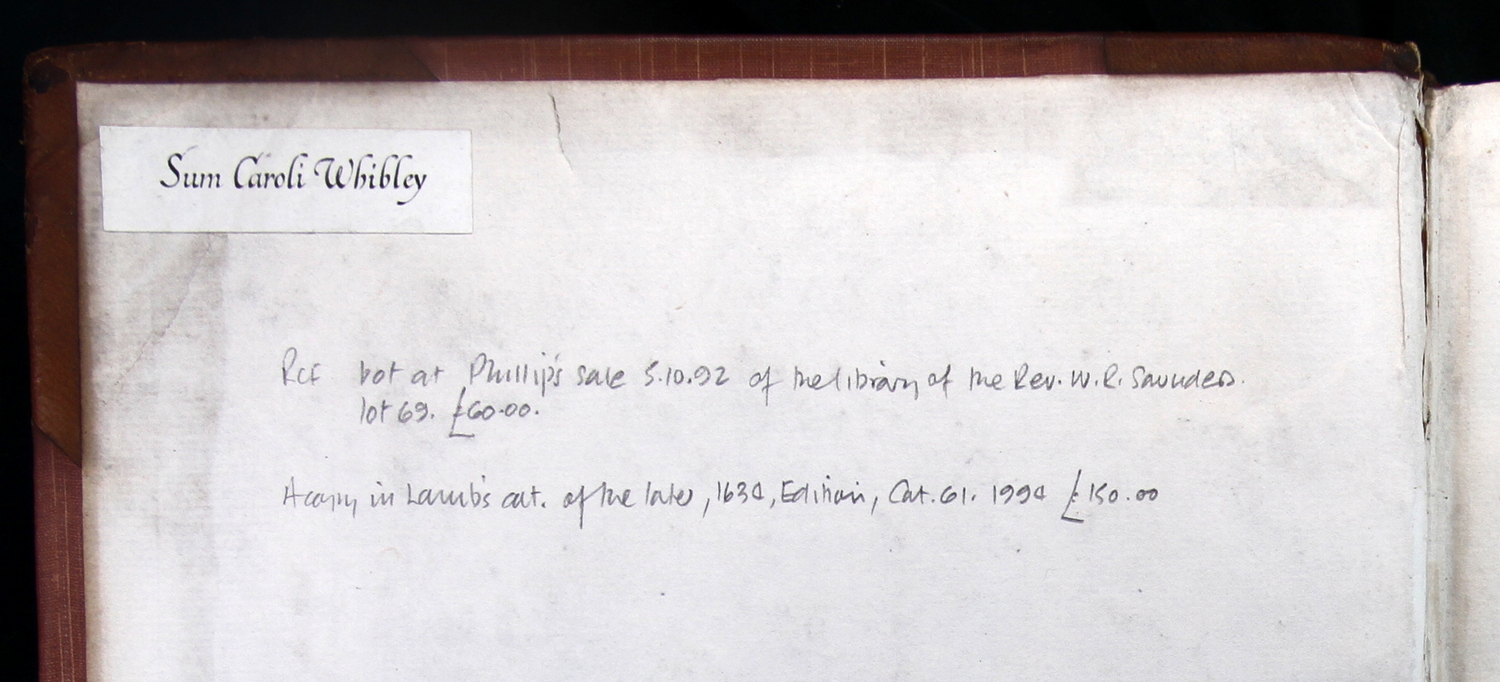 Sum Caroli Whibley
Ref bot at Phillip's sale 5.10.92 of the library of the Rev. W.R. Saunders.
lot 69. £60.00.
A copy in Lamb's cat. of the later, 1634, Edition, Cat. 61. 1994 £150.00